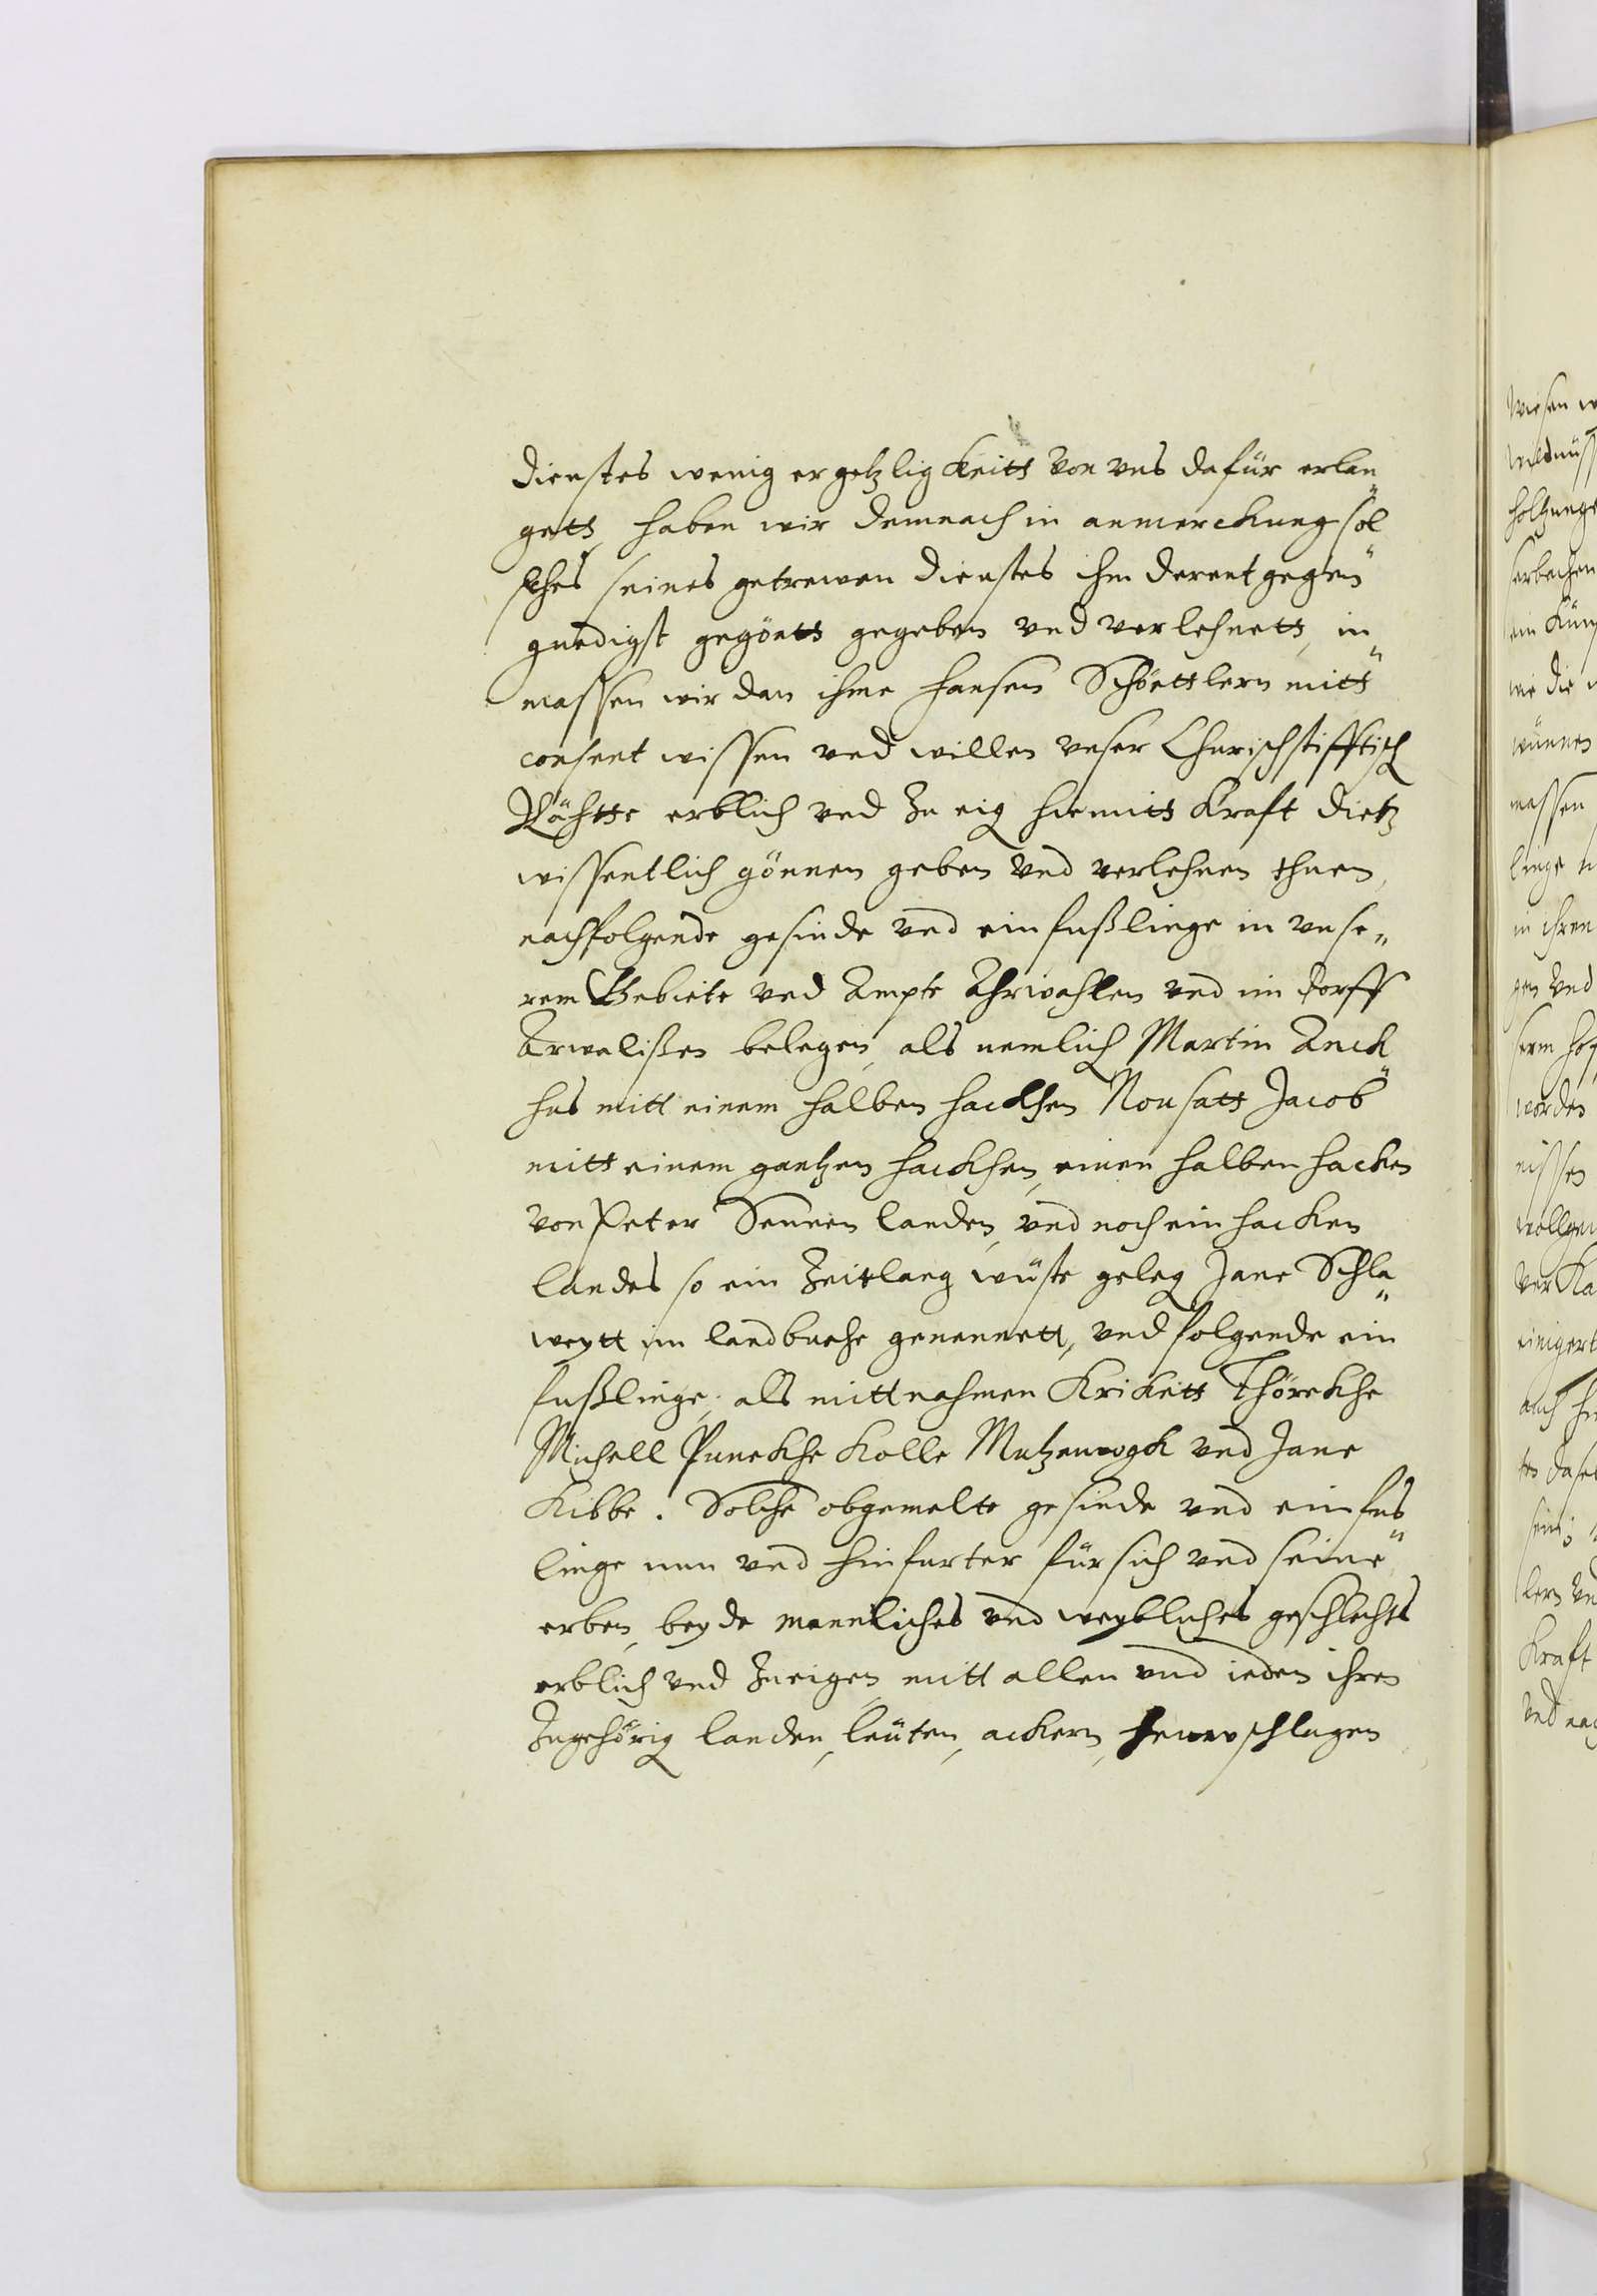 dienstes wenig ergetzligkeitt von vns dafür erlan„
gett, haben wir demnach in anmerckung sol„
sches seines getrewen dienstes ihm derentgegen
gnedigst gegöntt gegeben vnd verlehnett, in„
massen wir dan ihme Hansen Schöettlern mitt
consent wissen vnd willen vnser Churischstifftisch
Rähtte erblich vnd zu eig hiemitt Kraft dietz
wissentlich gönnen geben vnd verlehnen thuen,
nachfolgende gesinde vnd einfußlinge in vnse„
rem Gebiete vnd Ampte Ahrwahlen vnd im dorff
Arwalißen belegen, als nemlich Martin Anck„
hus mitt einem halben hackhen Nousatt Jacob
mitt einem gantzen hackhen, einen halben hacken
von Peter Sennen landen, vnd noch ein hacken
landes so ein Zeitlang wüste geleg Jane Schla„
weytt im landbuche genennett, vnd folgende ein
fußlinge, als mitt nahmen Krikett Thörekhe
Michell Punekhe Kolle Matzenvogk vnd Jane
Kibbe. Solche obgemelte gesinde vnd einfus„
linge nun vnd hinfurter für sich vnd seine
erben, beyde mannliches vnd weybliches geschlechts
erblich vnd zueigen, mitt allen vnd ieden ihren
Zugehörig landen, leüten, ackern, hewschlagen